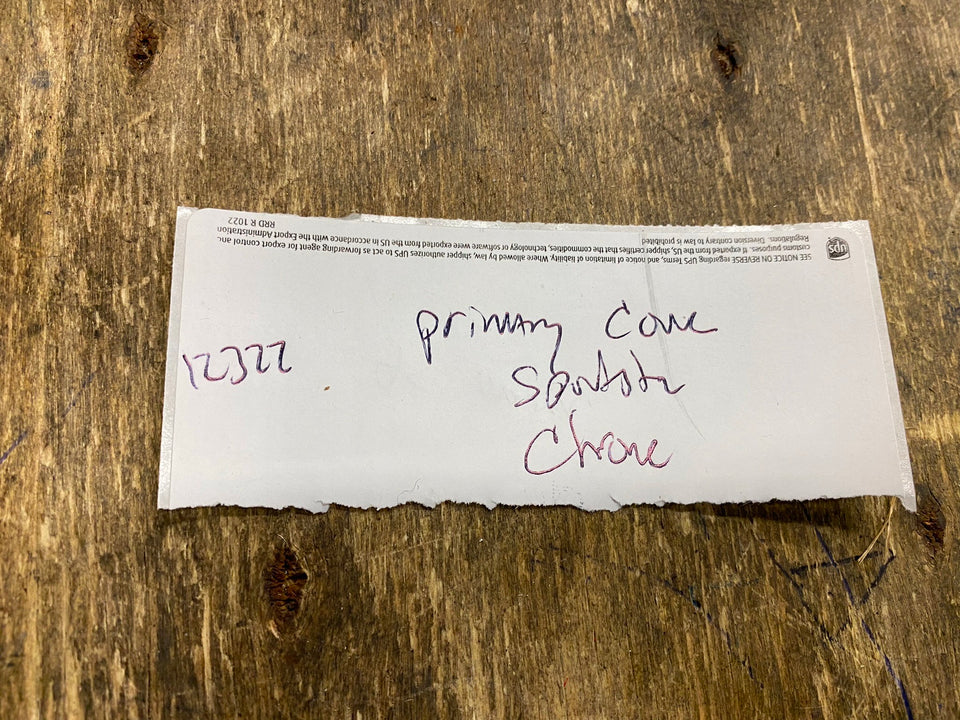 SEE NOTICE ON REVERSE regarding UPS Terms, and notice of limitation of liability. Where allowed by law, shipper authorizes UPS to act as forwarding agent for export control and
customs purposes. If exported from the US, shipper certifies that the commodities, technology or software were exported from the US in accordance with the Export Administration
Regulations. Diversion contrary to law is prohibited.
RRD R 1022
ups
primary Cove
12322
Chrome